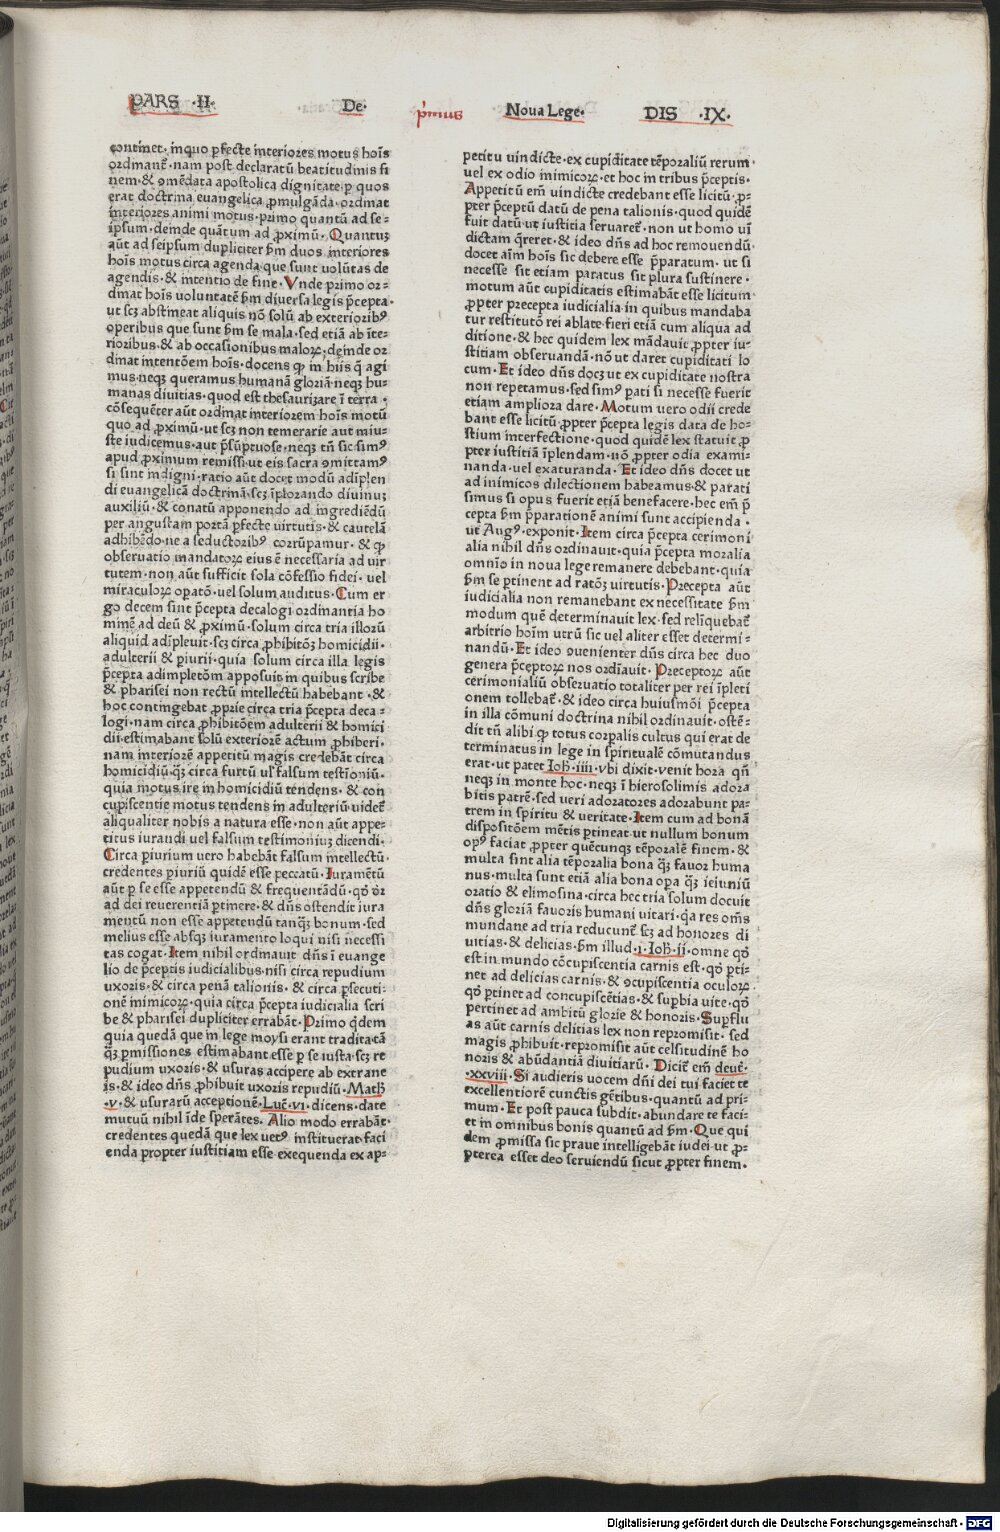 PARS ·II· De· p̄mus Noua Lege· DIS ·IX·
continet· in quo ꝑfecte interiores motus hoīs
ordmant᷒· nam post declaratū beatitudinis fi
nem·& ꝯmēdata apostolica dignitate·ꝑ quos
erat doctrina euangelica ꝓmulgāda·ordinat
interiores animi motus·primo quantū ad se⸗
ipsum·deinde quātum ad ꝓximū·Quantuꝫ
aūt ad seipsum dupliciter ẜm duos interiores
hoīs motus circa agenda·que sunt volūtas de
agendis·& intentio de fine·Vnde primo or⸗
dinat hoīs voluntatē ẜm diuersa legis p̄cepta·
ut scꝫ abstineat aliquis nō solū ab exteriorib᷒
operibus que sunt ẜm se mala·sed etiā ab īte⸗
riozibus·& ab occasionibus maloꝝ;deinde or
dinat intentōem hoīs·docens ꝙ in hiis q̄ agi
mus·neqꝫ queramus humanā gloriā·neqꝫ hu⸗
manas diuitias·quod est thesaurizare ī terra·
cōsequēter aūt ordinat interiorem hoīs motū
quo ad ꝓximū·ut scꝫ non temerarie aut iniu⸗
ste iudicemus·aut p̄sūptuose·neqꝫ tn̄ sic sim᷒
apud ꝓximum remissi·ut eis sacra ꝯmittam᷒
si sint indigni·ratio aūt docet modū adīplen
di euangelicā doctrinā·scꝫ īplorando diuinuꝫ
auxiliū·& conatū apponendo ad ingrediēdū
per angustam portā ꝑfecte virtutis·& cautelā
adhibēdo·ne a seductorib᷒ corrūpamur·& ꝙ
obseruatio mandatoꝝ eius ē necessaria ad uir
tutem·non aūt sufficit sola cōfessio fidei·vel
miraculoꝝ oꝑatō·vel solum auditus·Cum er
go decem sint p̄cepta decalogi ordinantia ho
minē ad deū & ꝓximū·solum circa tria illorū
aliquid adīpleuit·scꝫ circa ꝓhibitōꝫ homicidii·
adulterii & ꝑiurii·quia solum circa illa legis
p̄cepta adimpletōm apposuit·in quibus scribe
& pharisei non rectū intellectū habebant·&
hoc contingebat ꝓprie circa tria p̄cepta deca⸗
logi·nam circa ꝓhibitōem adulterii & homici
dii·estimabant solū exteriorē actum ꝓhiberi·
nam interiorē appetitū magis credebāt circa
homicidiū·q̄ꝫ circa furtū uł falsum testīoniū·
quia motus ire in homicidiū tendens·& con
cupiscentie motus tendens in adulteriū uidet᷒
aliqualiter nobis a natura esse·non aūt appe⸗
titus iurandi uel falsum testimoniuꝫ dicendi·
Circa ꝑiurium uero habebāt falsum intellectū·
credentes ꝑiuriū quidē esse peccatū·Iuramētū
aūt ꝑ se esse appetendū & frequentādū·qđ v̄r
ad dei reuerentiā ꝑtinere·& dn̄s ostendit iura
mentū non esse appetendū tanq̄ꝫ bonum·sed
melius esse absqꝫ iuramento loqui nisi necessi
tas cogat·Item nihil ordinauit dn̄s ī euange
lio de p̄ceptis iudicialibus·nisi circa repudium
uxoris·& circa penā talionis·& circa ꝑsecuti⸗
onē inimicoꝝ·quia circa p̄cepta iudicialia scri
be & pharisei dupliciter errabāt·Primo q̄dem
quia quedā que in lege moysi erant tradita·tā
q̄ꝫ ꝑmissiones estimabant esse ꝑ se iusta·scꝫ re
pudium uxoris·& usuras accipere ab extrane
is·& ideo dn̄s ꝓhibuit uxoris repudiū·Math̄
·v·& usurarū acceptionē·Luc̄·vi·dicens·date
mutuū nihil īde sperātes·Alio modo errabāt·
credentes quedā que lex uet᷒ instituerat·faci
enda propter iustitiam esse exequenda ex ap⸗
petitu uindicte·ex cupiditate tēporaliū rerum·
uel ex odio inimicoꝝ·et hoc in tribus p̄ceptis·
Appetitū em̄ uindicte credebant esse licitū·ꝓ⸗
pter p̄ceptū datū de pena talionis·quod quidē
fuit datū·ut iustitia seruaret᷒·non ut homo uī
dictam q̄reret·& ideo dn̄s ad hoc remouendū·
docet aīm hoīs sic debere esse p̄paratum·ut si
necesse sit etiam paratus sit plura sustinere·
motum aūt cupiditatis estimabāt esse licitum
ꝓpter precepta iudicialia·in quibus mandaba
tur restitutō rei ablate·fieri etiā cum aliqua ad
ditione·& hec quidem lex mādauit ꝓpter iu⸗
stitiam obseruandā·nō ut daret cupiditati lo
cum·Et ideo dn̄s docꝫ ut ex cupiditate nostra
non repetamus·sed sim᷒ pati si necesse fuerit
etiam ampliora dare·Motum uero odii crede
bant esse licitū·ꝓpter p̄cepta legis data de ho⸗
stium interfectione·quod quidē lex statuit ꝓ
pter iustitiā īplendam·nō ꝓpter odia exami⸗
nanda·uel exaturanda·Et ideo dn̄s docet ut
ad inimicos dilectionem habeamus·& parati
simus si opus fuerit etiā benefacere·hec em̄ p̄
cepta ẜm p̄parationē animi sunt accipienda·
ut Aug᷒ exponit·Item circa p̄cepta cerimoni
alia nihil dn̄s ordinauit·quia p̄cepta moralia
omnīo in noua lege remanere debebant·quia
ẜm se ꝑtinent ad ratōꝫ virtutis·Precepta aūt
iudicialia non remanebant ex necessitate ẜm
modum quē determinauit lex·sed relīquebat᷒
arbitrio hoīm utrū sic uel aliter esset determi⸗
nandū·Et ideo ꝯuenienter dn̄s circa hec duo
genera p̄ceptoꝝ nos ordīauit·Preceptoꝝ aūt
cerimonialiū obseruatio totaliter per rei īpleti
onem tollebat᷒·& ideo circa huiusmōi p̄cepta
in illa cōmuni doctrina nihil ordinauit·ostē⸗
dit tn̄ alibi ꝙ totus corꝑalis cultus qui erat de
terminatus in lege in spiritualē cōmutandus
erat·ut patet Ioh̄·iiii·vbi dixit·venit hora qn̄
neqꝫ in monte hoc·neqꝫ ī hierosolimis adora
bitis patrē·sed ueri adoratores adorabunt pa⸗
trem in spiritu & veritate·Item cum ad bonā
dispositōem mētis ꝑtineat·ut nullum bonum
op᷒ faciat ꝓpter quēcunqꝫ tēporalē finem·&
multa sint alia tēporalia bona q̄ꝫ fauor huma
nus·multa sunt etiā alia bona oꝑa q̄ꝫ ieiuniū
oratio & elimosina·circa hec tria solum docuit
dn̄s gloriā fauoris humani uitari·q̄a res om̄s
mundane ad tria reducunt᷒ scꝫ ad honores di
uitias·& delicias·ẜm illud·i·Ioh̄·ii·omne qđ
est in mundo cōcupiscentia carnis est·qđ ꝑti⸗
net ad delicias carnis·& ꝯcupiscentia oculoꝝ·
qđ ꝑtinet ad concupiscētias·& suꝑbia uite·qđ
pertinet ad ambitū glorie & honoris·Suꝑflu
as aūt carnis delitias lex non repromisit·sed
magis ꝓhibuit·repromisit aūt celsitudinē ho
noris & abūdantiā diuitiarū·Dicit᷒ em̄ deut᷒·
·xxviii·Si audieris uocem dn̄i dei tui faciet te
excellentiorē cunctis gētibus·quantū ad pri⸗
mum·Et post pauca subdit·abundare te faci⸗
et in omnibus bonis quantū ad ẜm·Que qui
dem ꝓmissa sic praue intelligebāt iudei·ut ꝓ⸗
pterea esset deo seruiendū sicut ꝓpter finem·
Digitalisierung gefördert durch die Deutsche Forschungsgemeinschaft - DFG